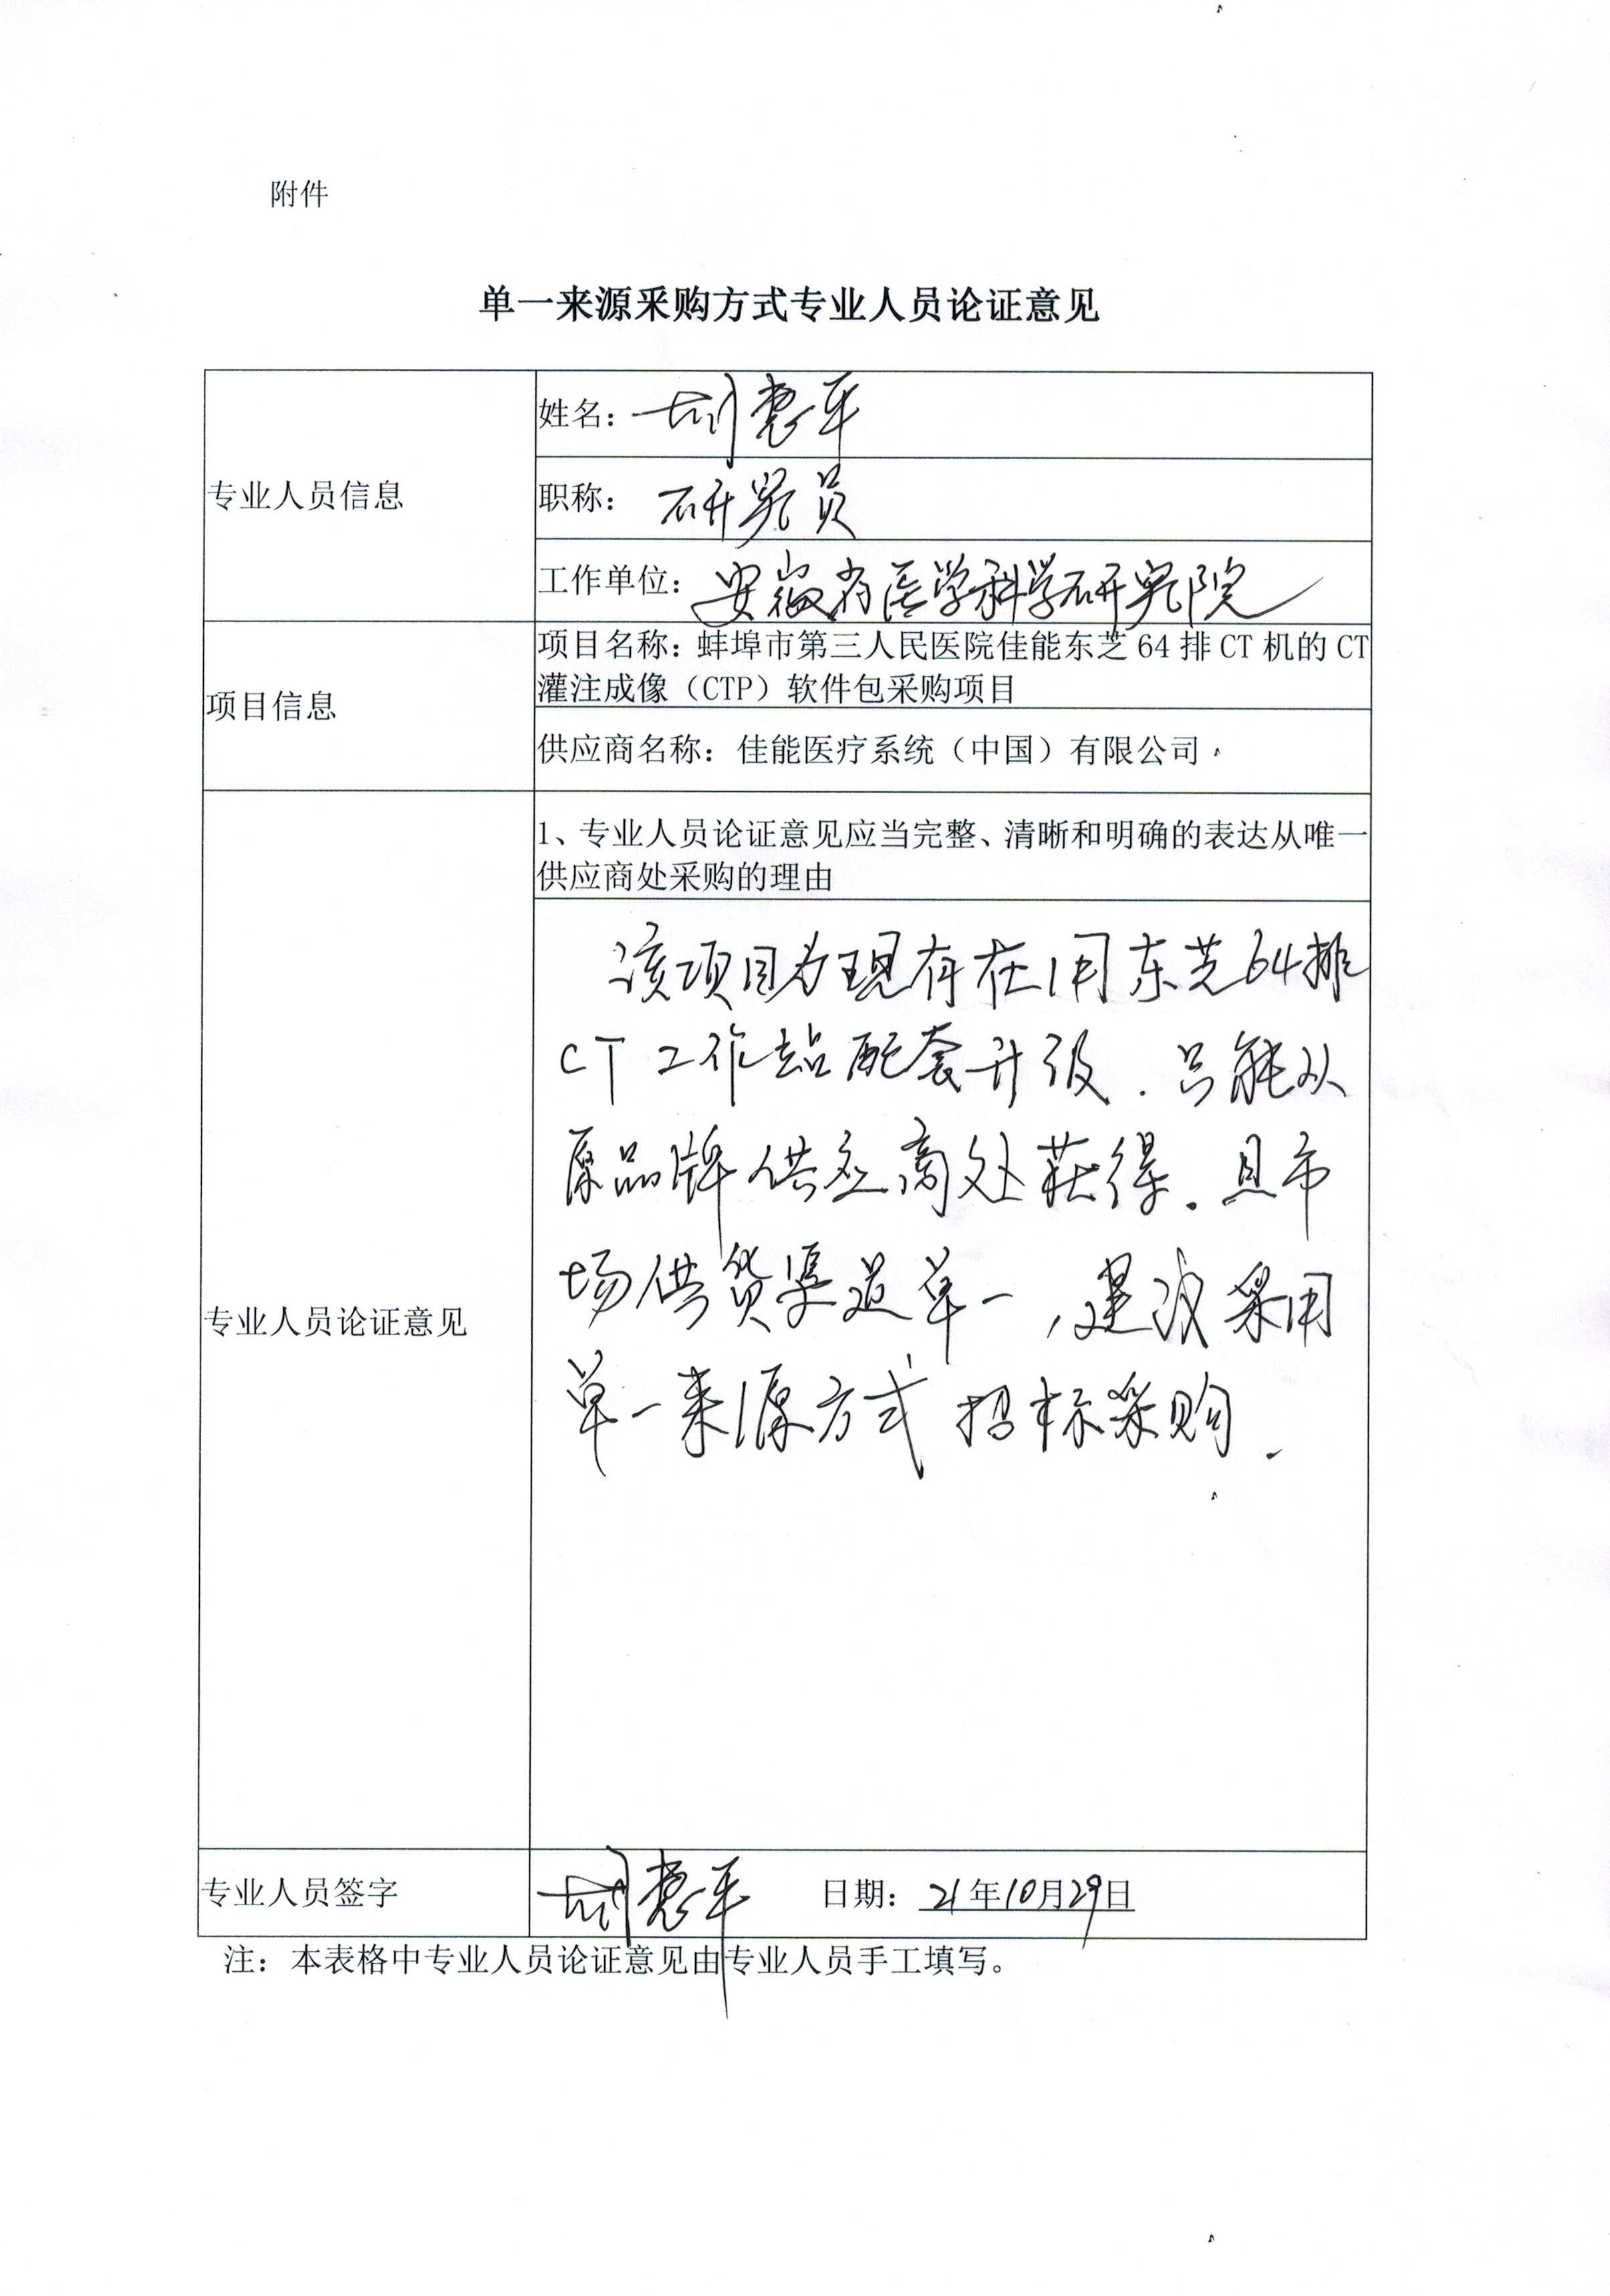 附件
单一来源采购方式专业人员论证意见
专业人员信息
姓名：胡惠平
职称：研究员
工作单位：安徽省医学科学研究院
项目信息
项目名称：蚌埠市第三人民医院佳能东芝 64 排 CT 机的 CT
灌注成像（CTP）软件包采购项目
供应商名称：佳能医疗系统（中国）有限公司
专业人员论证意见
1、专业人员论证意见应当完整、清晰和明确的表达从唯一
供应商处采购的理由
该项目为现有在用东芝64排
CT工作站配套升级.只能从
原品牌供应商处获得.且市
场供货渠道单一,建议采用
单一来源方式招标采购.
专业人员签字
胡惠平 日期：21年10月29日
注：本表格中专业人员论证意见由专业人员手工填写。